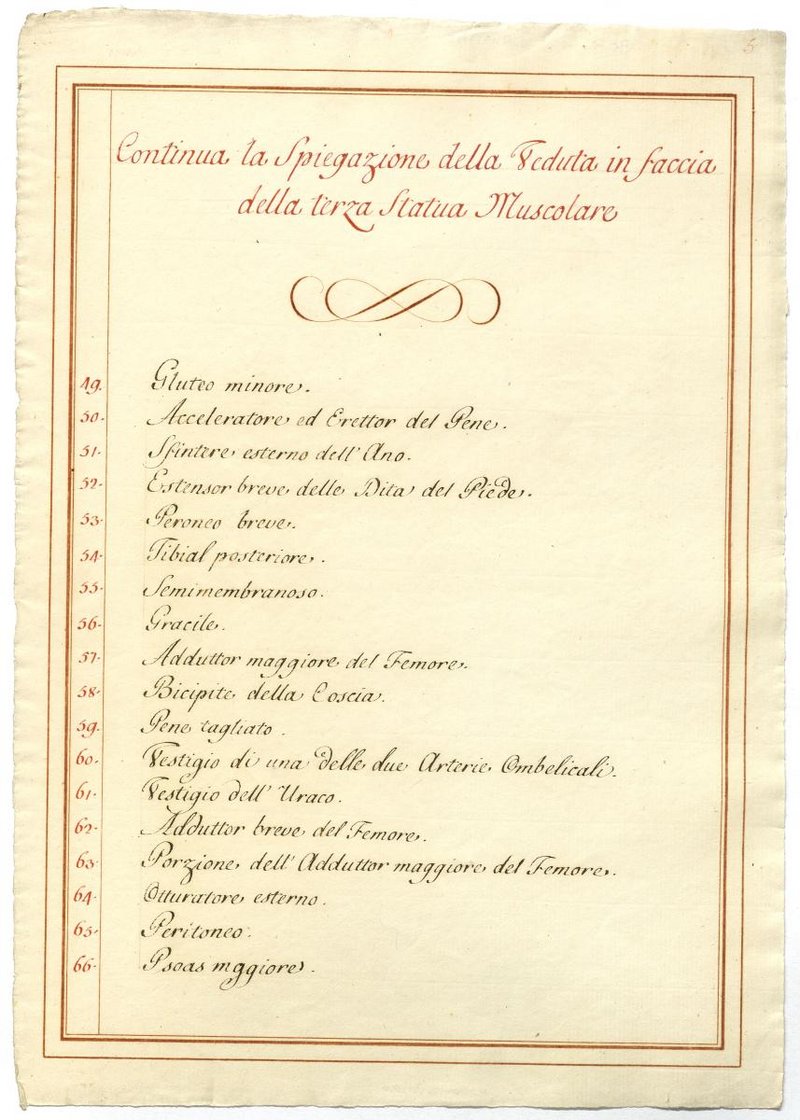 5
Continua la Spiegazione della Veduta in faccia
della terza Statua Muscolare
49. Gluteo minore.
50. Acceleratore ed Erettor del Pene.
51. Sfintere esterno dell' Ano.
52. Estensor breve delle Dita del Piede.
53. Peroneo breve.
54. Tibial posteriore.
55. Semimembranoso.
56. Gracile.
57. Adduttor maggiore del Femore.
58. Bicipite della Coscia.
59. Pene tagliato.
60. Vestigio di una delle due Arterie Ombelicali.
61. Vestigio dell' Uraco.
62. Adduttor breve del Femore.
63. Porzione dell' Adduttor maggiore del Femore.
64. Otturatore esterno.
65. Peritoneo.
66. Psoas mggiore.